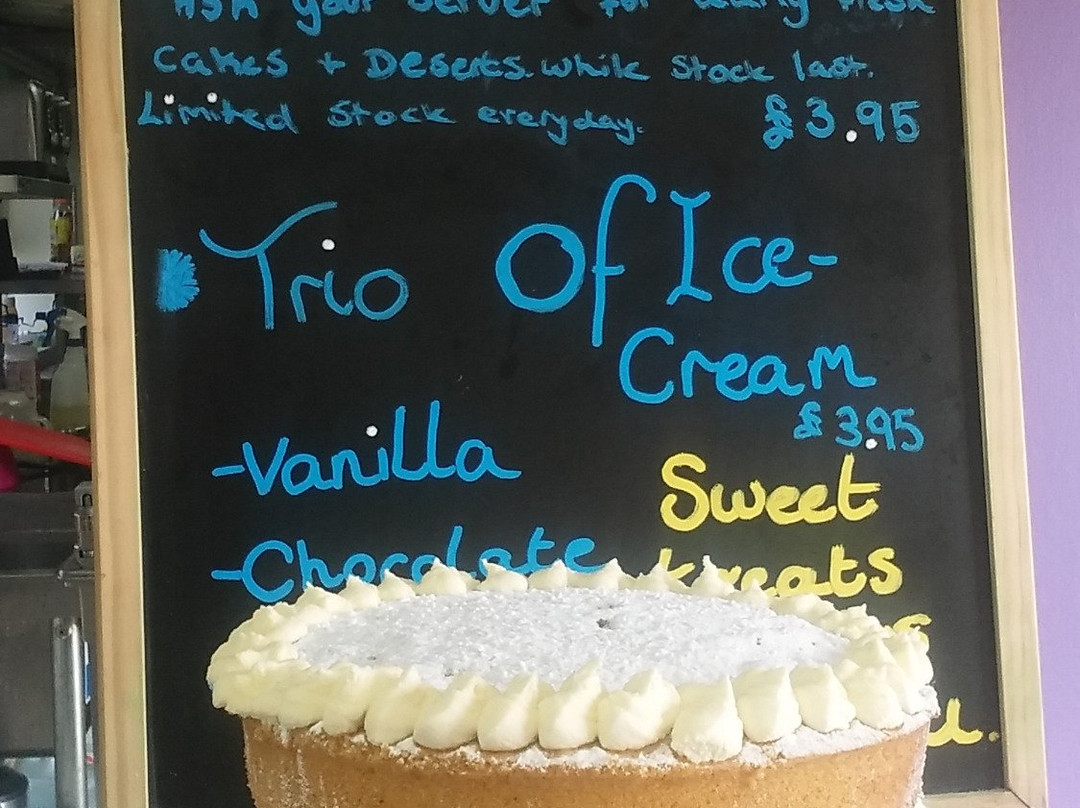 Ask your server for daily fresh
Cakes + Deserts. while stock last.
Limited stock everyday.
£3.95
Trio Of Ice-
Cream
£3.95
-Vanilla
-Chocolate
Sweet
treats